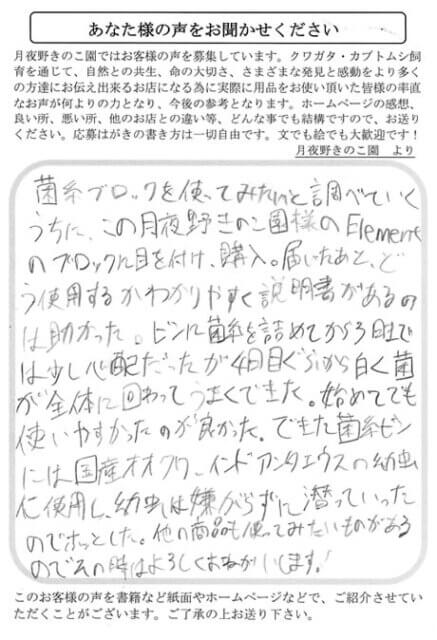 あなた様の声をお聞かせください
月夜野きのこ園ではお客様の声を募集しています。クワガタ・カブトムシ飼
育を通じて、自然との共生、命の大切さ、さまざまな発見と感動をより多く
の方達にお伝え出来るお店になる為に実際に用品をお使い頂いた皆様の率直
なお声が何よりの力となり、今後の参考となります。ホームページの感想、
良い所、悪い所、他のお店との違い等、どんな事でも結構ですので、お送り
ください。応募はがきの書き方は一切自由です。文でも絵でも大歓迎です！
月夜野きのこ園　より
菌糸ブロックを使ってみたいと調べていく
うちに、この月夜野きのこ園様のElement
のブロックに目を付け、購入。届いたあと、ど
う使用するかわかりやすく説明書があるの
は助かった。ビンに菌糸を詰めてから3日まで
は少し心配だったが4日目ぐらいから白く菌
が全体に回わってうまくできた。始めてでも
使いやすかったのが良かった。できた菌糸ビン
には国産オオクワ、インドアンタエウスの幼虫
に使用し、幼虫は嫌がらずに潜っていった
のでホッとした。他の商品も使ってみたいものがある
のでその時はよろしくおねがいします!
このお客様の声を書籍など紙面やホームページなどで、ご紹介させてい
ただくことがございます。ご了承の上お送り下さい。